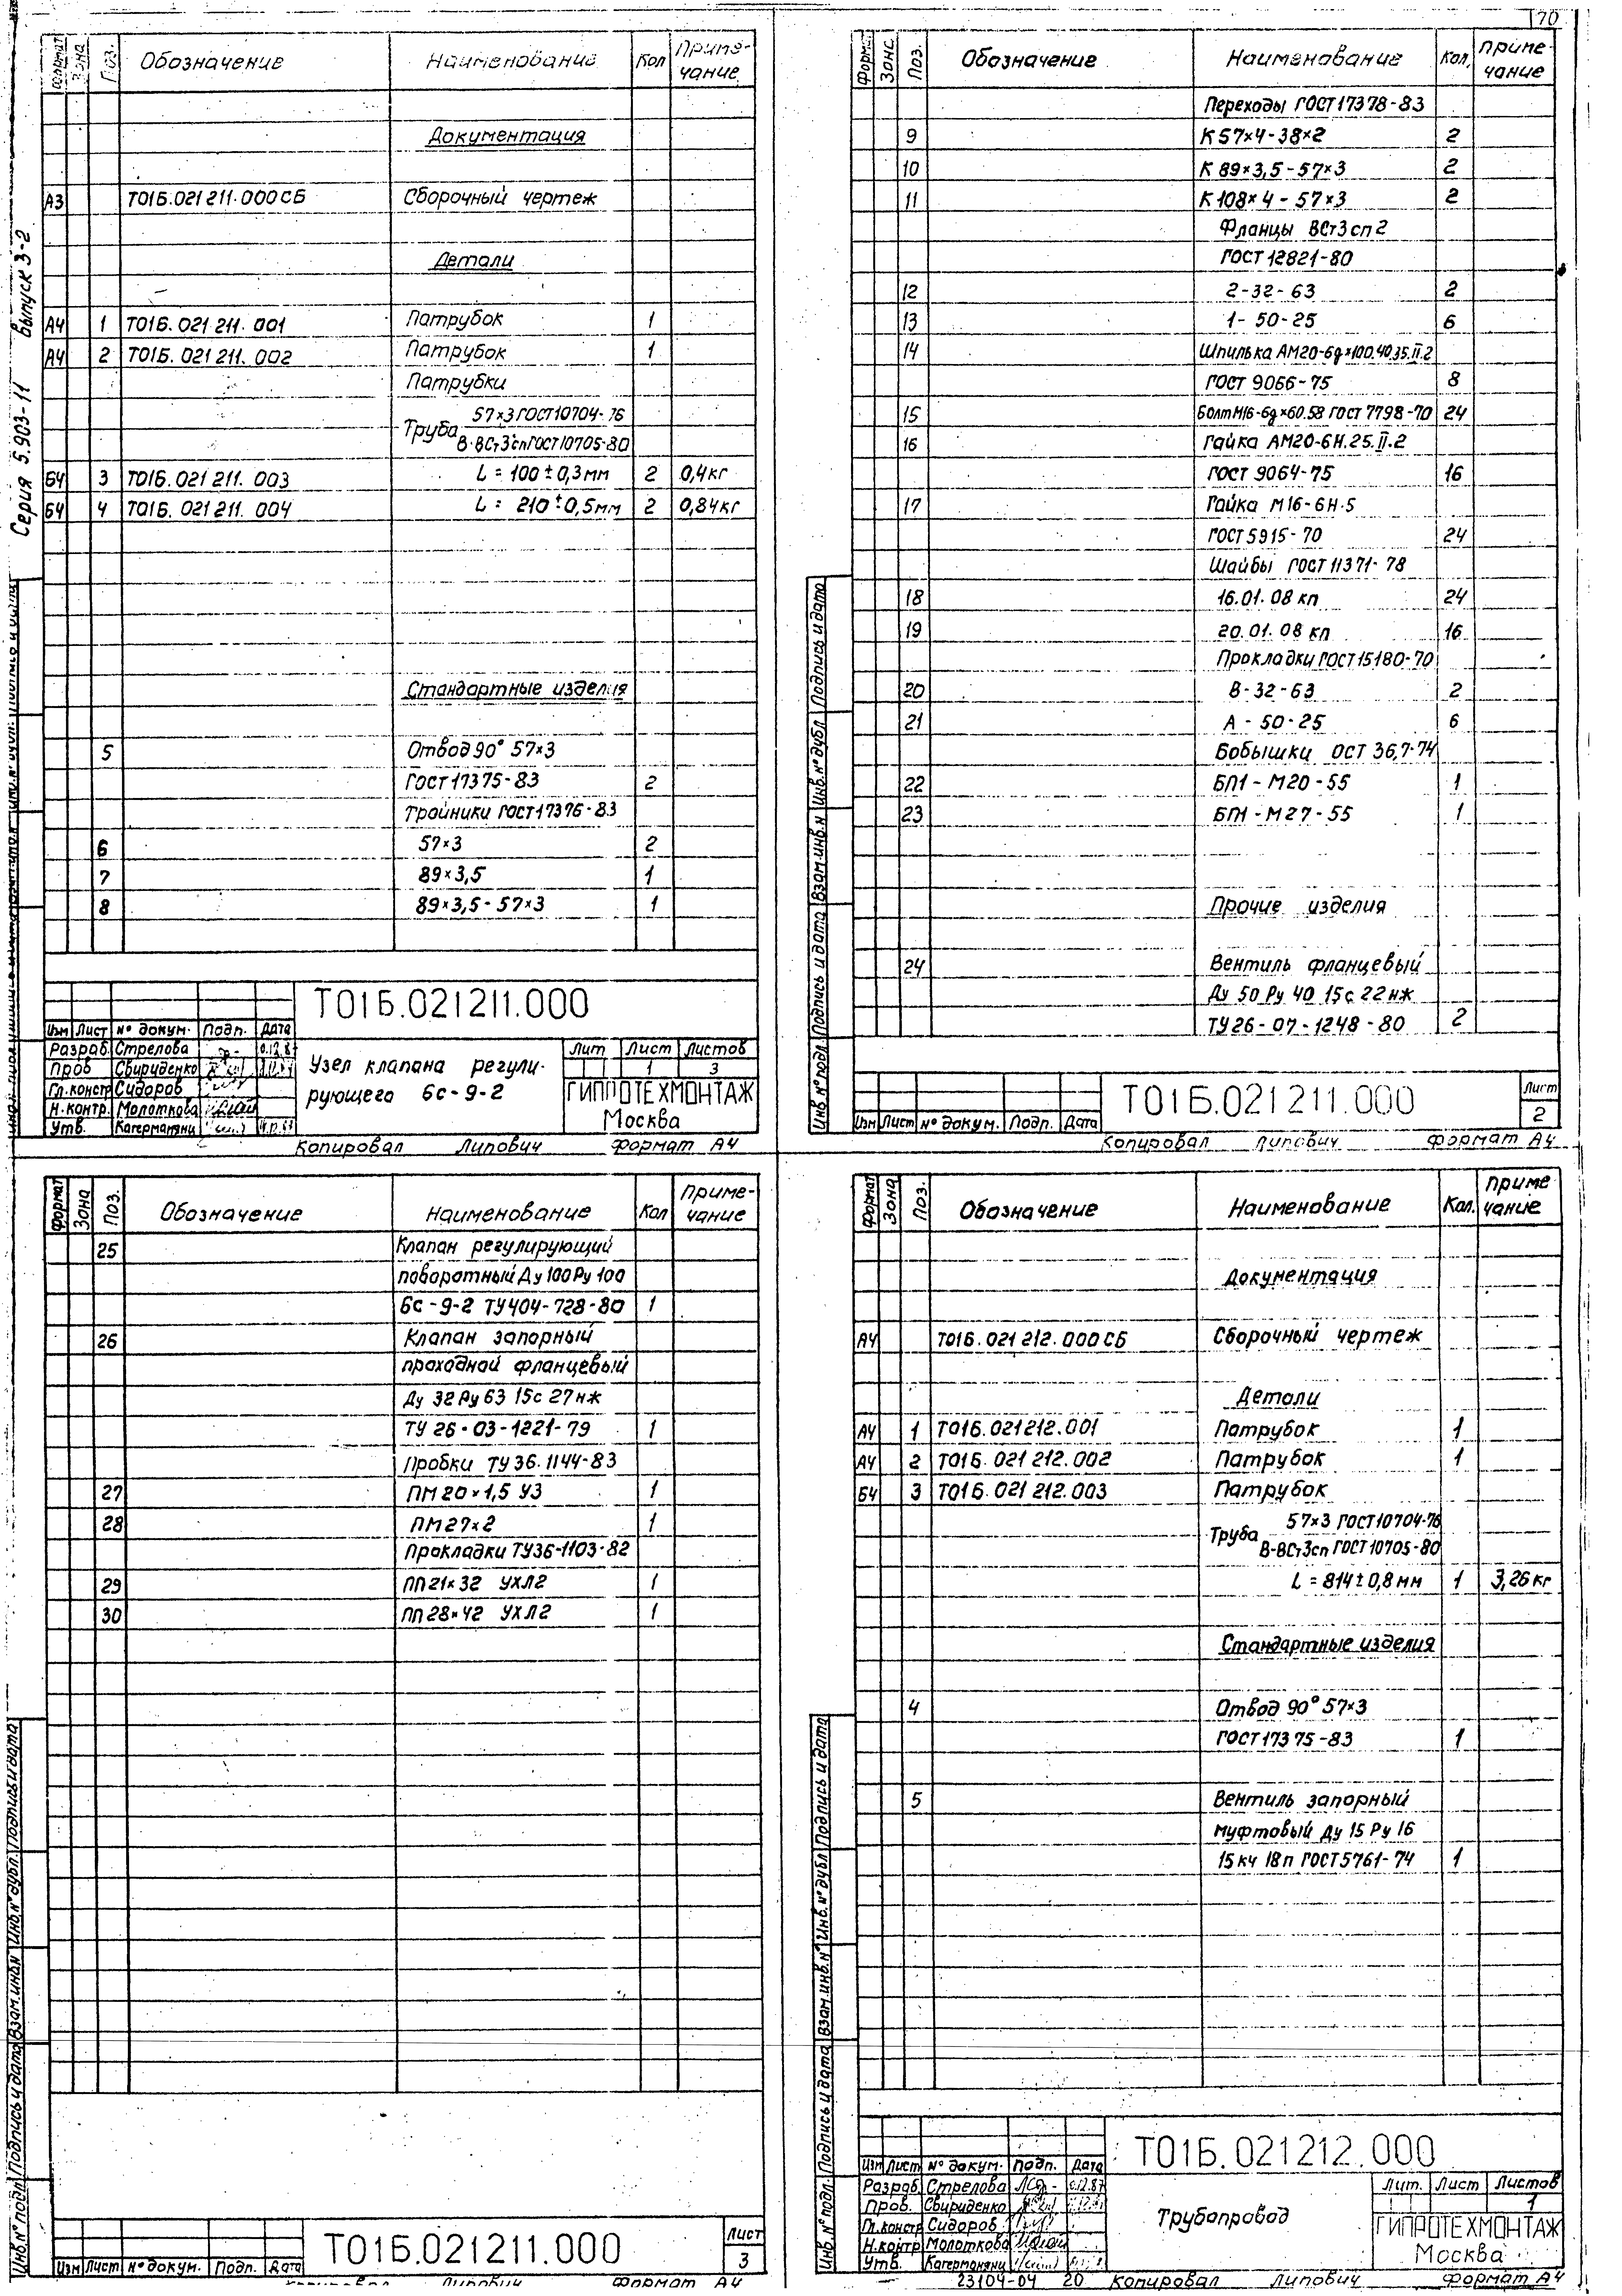 70
Серия 5.903-11 выпуск 3-2
Формат Зона Поз. Обозначение Наименование Кол Приме-чание
Документация
А3 Т01Б.021 211.000СБ Сборочный чертеж
Детали
А4 1 Т01Б.021 211.001 Патрубок 1
А4 2 Т01Б.021 211.002 Патрубок 1
Патрубки
57×3 ГОСТ10704-76
Труба
В-ВСт3сп ГОСТ10705-80
Б4 3 Т01Б.021 211.003 L = 100 ± 0,3 мм 2 0,4 кг
Б4 4 Т01Б.021 211.004 L = 210 ± 0,5 мм 2 0,84 кг
Стандартные изделия
5 Отвод 90° 57×3
ГОСТ 17375-83 2
Тройники ГОСТ17376-83
6 57×3 2
7 89×3,5 1
8 89×3,5-57×3 1
Т01Б.021211.000
Изм Лист № докум. Подп. Дата
Разраб. Стрелова
Пров Свириденко
Гл.констр Сидоров
Н.контр. Молоткова
Утв.
Узел клапана регули-
рующего 6с-9-2
Лит Лист Листов
1 3
ГИПРОТЕХМОНТАЖ
Москва
Копировал Липович Формат А4
Формат Поз. Обозначение Наименование Кол. Приме-чание
Переходы ГОСТ17378-83
9 К 57×4-38×2 2
10 К 89×3,5-57×3 2
11 К 108×4-57×3 2
Фланцы ВСт3сп2
ГОСТ 12821-80
12 2-32-63 2
13 1-50-25 6
14 Шпилька АМ20-6g×100.40.35.II.2
ГОСТ 9066-75 8
15 Болт М16-6g×60.58 ГОСТ 7798-70 24
16 Гайка АМ20-6Н.25.II.2
ГОСТ 9064-75 16
17 Гайка М16-6Н.5
ГОСТ 5915-70 24
Шайбы ГОСТ 11371-78
18 16.01.08 кп 24
19 20.01.08 кп 16
Прокладки ГОСТ15180-70
20 В-32-63 2
21 А-50-25 6
Бобышки ОСТ 36,7-74
22 БП1-М20-55 1
23 БП1-М27-55 1
Прочие изделия
24 Вентиль фланцевый
Ду 50 Ру 40 15с 22нж
ТУ 26-07-1248-80 2
Инв.№подл Подпись и дата Взам.инв.№ Инв.№дубл Подпись и дата
Изм Лист № докум. Подп. Дата
Т01Б.021211.000
Лист
2
Копировал Липович Формат А4
Формат Зона Поз. Обозначение Наименование Кол Приме-чание
25 Клапан регулирующий
поворотный Ду 100 Ру 100
6с-9-2 ТУ404-728-80 1
26 Клапан запорный
проходной фланцевый
Ду 32 Ру 63 15с 27нж
ТУ 26-03-1221-79 1
Пробки ТУ 36.1144-83
27 ПМ 20×1,5 У3 1
28 ПМ 27×2 1
Прокладки ТУ36-1103-82
29 ПП 21×32 УХЛ2 1
30 ПП 28×42 УХЛ2 1
Инв.№подл Подпись и дата Взам.инв.№ Инв.№дубл. Подпись и дата
Изм Лист № докум. Подп. Дата
Т01Б.021211.000
Лист
3
Копировал Липович Формат А4
Формат Зона Поз. Обозначение Наименование Кол. Приме чание
Документация
А4 Т01Б.021 212.000СБ Сборочный чертеж
Детали
А4 1 Т01Б.021212.001 Патрубок 1
А4 2 Т01Б.021 212.002 Патрубок 1
Б4 3 Т01Б.021 212.003 Патрубок
57×3 ГОСТ10704-76
Труба
В-ВСт3сп ГОСТ10705-80
L = 814 ± 0,8 мм 1 3,26 кг
Стандартные изделия
4 Отвод 90° 57×3
ГОСТ 17375-83 1
5 Вентиль запорный
муфтовый Ду 15 Ру 16
15кч 18п ГОСТ 5761-74 1
Инв.№подл. Подпись и дата Взам.инв.№ Инв.№дубл Подпись и дата
Т01Б.021212.000
Изм Лист № докум. Подп. Дата
Разраб. Стрелова
Пров. Свириденко
Гл.констр Сидоров
Н.контр Молоткова
Утв.
Трубопровод
Лит. Лист Листов
1
ГИПРОТЕХМОНТАЖ
Москва
23104-04 20 Копировал Липович Формат А4